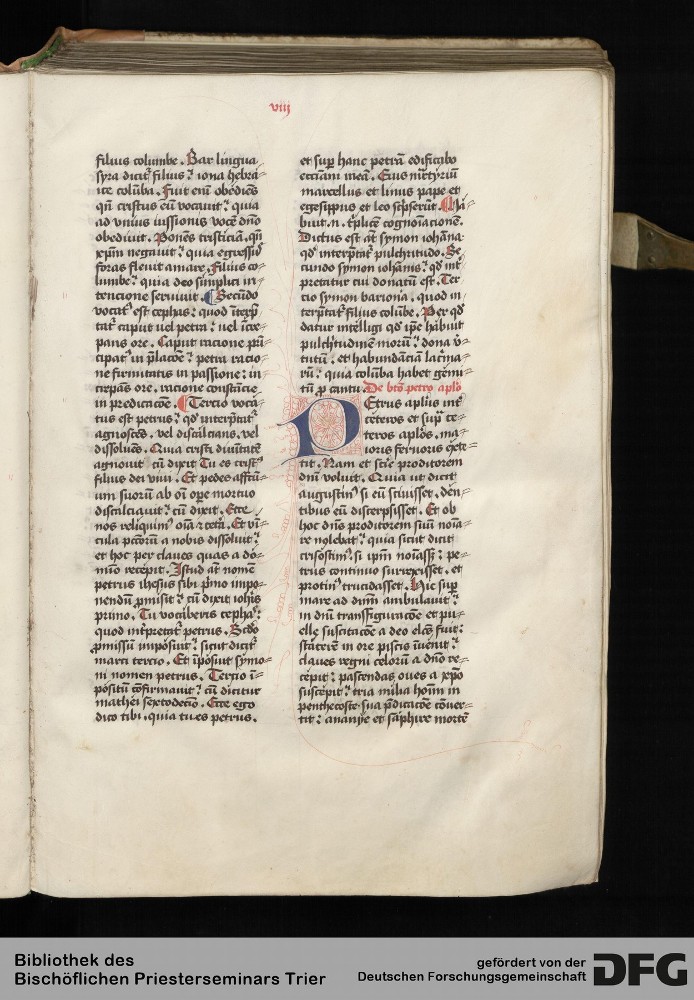 viij
filius columbe. Bar lingua
syra dicit᷑ filius ⁊ iona hebra-
ice colūba. Fuit eni͞ obediēs
qn̄ cristus eū vocauit ⁊ quia
ad vnius iussionis vocē dn̄o
obediuit. Ponēs tristiciā, qn̄
xp̄m negauit ⁊ quia egressus
foras fleuit amare, filius co-
lumbe ⁊ quia deo simplici in
tencione seruiuit. Secūdo
vocat᷑ est cephas ⁊ quod īterp̄
tat᷑ caput vel petra ⁊ uel īcre-
pans ore. Caput racione prī
cipat᷑ in p̄lacōe ⁊ petra racio-
ne firmitatis in passione ⁊ in
crepans ore, racione constācie
in predicacōe. Tercio voca-
tus est petrus ⁊ qd̓ interp̄tat᷑
agnoscēs, vel discalcians, vel
dissoluēs. Quia cristi diuītatē
agnouit cū dixit Tu es crist᷑
filius dei viui. Et pedes affctū-
um suorū ab oī ope mortuo
discalciauit ⁊ cū dixit. Ecce
nos reliquim᷑ oīa ⁊ cetͣ. Et vī-
cula pctōrū a nobis dissoluit ⁊
et hoc per claues quas a do-
mīo recepit. Istud at̄ nomē
petrus ihesus sibi p̄mo impo-
nendū ꝓmisit ⁊ cū dixit iohīs
primo. Tu vocaberis cephaˢ ⁊
quod int̓pretat᷑ petrus. Scd̓o
ꝓmissū imposuit ⁊ sicut dicit᷑
marci tercio. Et īposuit symo-
ni nomen petrus. Tercio ī-
positū cōfirmauit ⁊ cū dicitur
mathei sextodecīo. Ecce ego
dico tibi, quia tu es petrus.
et suꝑ hanc petrā edificabo
eccīam meā. Eius mr̄tyriū
marcellus et linus pape et
egesippus et leo scͥpserūt. Ha-
buit .n. tͥplicē cognoīacionē.
Dictus est at̄ symon iohāna
qd̓ interp̄tat᷑ pulchritudo. Se
cundo symon iohanis ⁊ qd̓ int̓
pretatur cui donatū est. Ter
cio symon bariona, quod in-
terp̄tat᷑ filius colūbe. Per qd̓
datur intelligi qd̓ ip̄e habuit
pulchͥtudinē morū ⁊ dona v-
tutū, et habundāciā lacͥma-
rū ⁊ quia colūba habet gemi-
tū ꝓ cantu. De btō petro apl̓o
PEtrus apl̓us int̓
ceteros et supͣ ce-
teros apl̓os, ma-
ioris feruoris exti-
tit. Nam et scīe proditorem
dn̄i voluit. Quia vt dicit
augustin᷑ si eū sciuisset, dēn-
tibus eū discerpsisset. Et ob
hoc dn̄s proditorem suū noīa-
re nolebat ⁊ quia sicut dicit
crisostim᷑ si ip̄m noīasset ⁊ pe-
trus continuo surrexisset, et
protin᷑ trucidasset. Hic suꝑ
mare ad dn̄m ambulauit ⁊
in dn̄i transfiguracōe et pu-
elle suscitacōe a deo elc̄s fuit ⁊
staterē in ore piscis īuenit ⁊
claues regni celorū a dn̄o re-
cepit ⁊ pascendas oues a xp̄o
suscepit ⁊ tria milia hoīm in
penthecoste sua p̄dicacōe cōuer-
tit ⁊ ananye et saphire mortē
Bibliothek des
Bischöflichen Priesterseminars Trier
gefördert von der
Deutschen Forschungsgemeinschaft
DFG